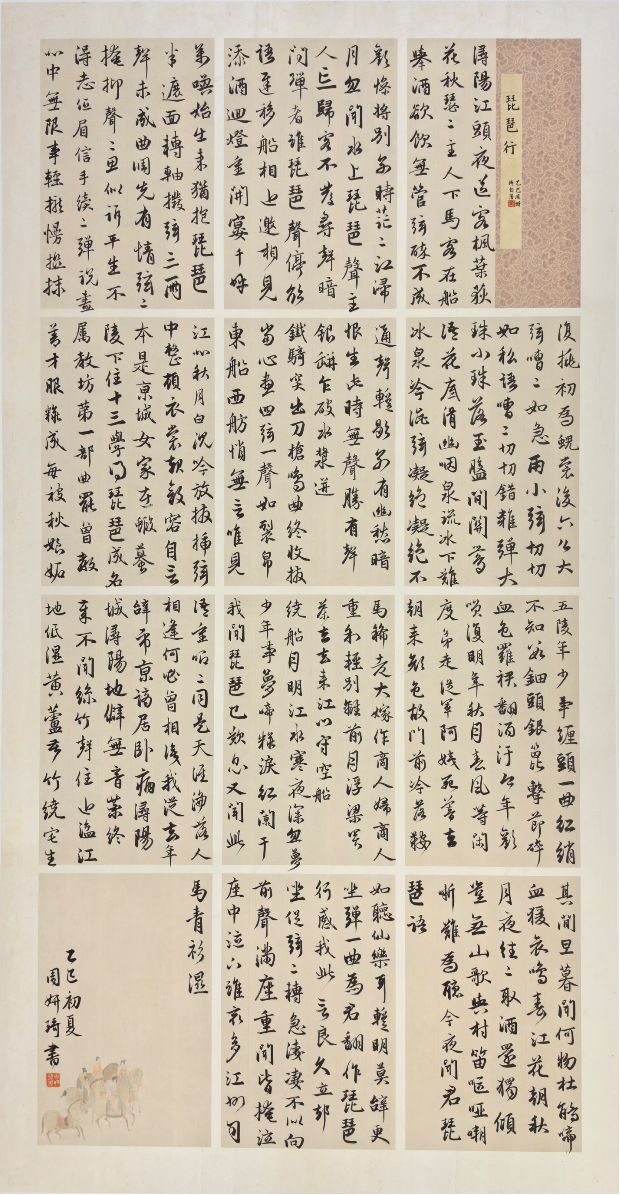 琵琶行
潯陽江頭夜送客楓葉荻
花秋瑟〻主人下馬客在船
舉酒欲飲無管弦醉不成
歡慘將別別時茫〻江浸
月忽聞水上琵琶聲主
人忘歸客不發尋聲暗
問彈者誰琵琶聲停欲
語遲移船相近邀相見
添酒迴燈重開宴千呼
萬喚始出來猶抱琵琶
半遮面轉軸撥弦三兩
聲未成曲調先有情弦〻
掩抑聲〻思似訴平生不
得志低眉信手續〻彈說盡
心中無限事輕攏慢撚抹
復挑初為霓裳後六么大
弦嘈〻如急雨小弦切切
如私語嘈〻切切錯雜彈大
珠小珠落玉盤間關鶯
語花底滑幽咽泉流冰下難
冰泉冷澀弦凝絕凝絕不
通聲暫歇別有幽愁暗
恨生此時無聲勝有聲
銀瓶乍破水漿迸
鐵騎突出刀槍鳴曲終收撥
當心畫四弦一聲如裂帛
東船西舫悄無言唯見
江心秋月白沉吟放撥插弦
中整頓衣裳起斂容自言
本是京城女家在蝦蟆
陵下住十三學得琵琶成名
屬教坊第一部曲罷曾教
善才服妝成每被秋娘妒
五陵年少爭纏頭一曲紅綃
不知數鈿頭銀篦擊節碎
血色羅裙翻酒汙今年歡
笑復明年秋月春風等閒
度弟走從軍阿姨死暮去
朝來顏色故門前冷落鞍
馬稀老大嫁作商人婦商人
重利輕別離前月浮梁買
茶去去來江口守空船
繞船月明江水寒夜深忽夢
少年事夢啼妝淚紅闌干
我聞琵琶已歎息又聞此
語重唧〻同是天涯淪落人
相逢何必曾相識我從去年
辭帝京謫居臥病潯陽
城潯陽地僻無音樂終
歲不聞絲竹聲住近湓江
地低濕黃蘆苦竹繞宅生
其間旦暮聞何物杜鵑啼
血猿哀鳴春江花朝秋
月夜往〻取酒還獨傾
豈無山歌與村笛嘔啞嘲
哳難為聽今夜聞君琵
琶語
如聽仙樂耳暫明莫辭更
坐彈一曲為君翻作琵琶
行感我此言良久立卻
坐促弦〻轉急淒淒不似向
前聲滿座重聞皆掩泣
座中泣下誰最多江州司
馬青衫濕
乙巳初夏
周妍琦書